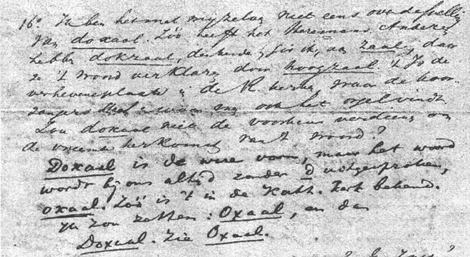 16º Ik ben het met mijzelven niet eens over de spelling
van doxaal. Zoo heeft het Heremans. Anderen
hebben dokzaal, denkende, gis ik, aan zaal, daar
ze 't woord verklaren door hoogzaal. 't Is de
verhevene plaats in de K. kerken, waar de koor-
zangers en ook het orgel vindt.
Zou doxaal niet de voorkeur verdienen om
de vreemde herkomst van 't woord?
Doxaal is de ware vorm, maar het woord
wordt bij ons altijd zonder d uitgesproken,
oxaal. Zoo is 't in de Kath. kerk bekend.
Ik zou zetten: Oxaal, en dan
Doxaal. Zie Oxaal.